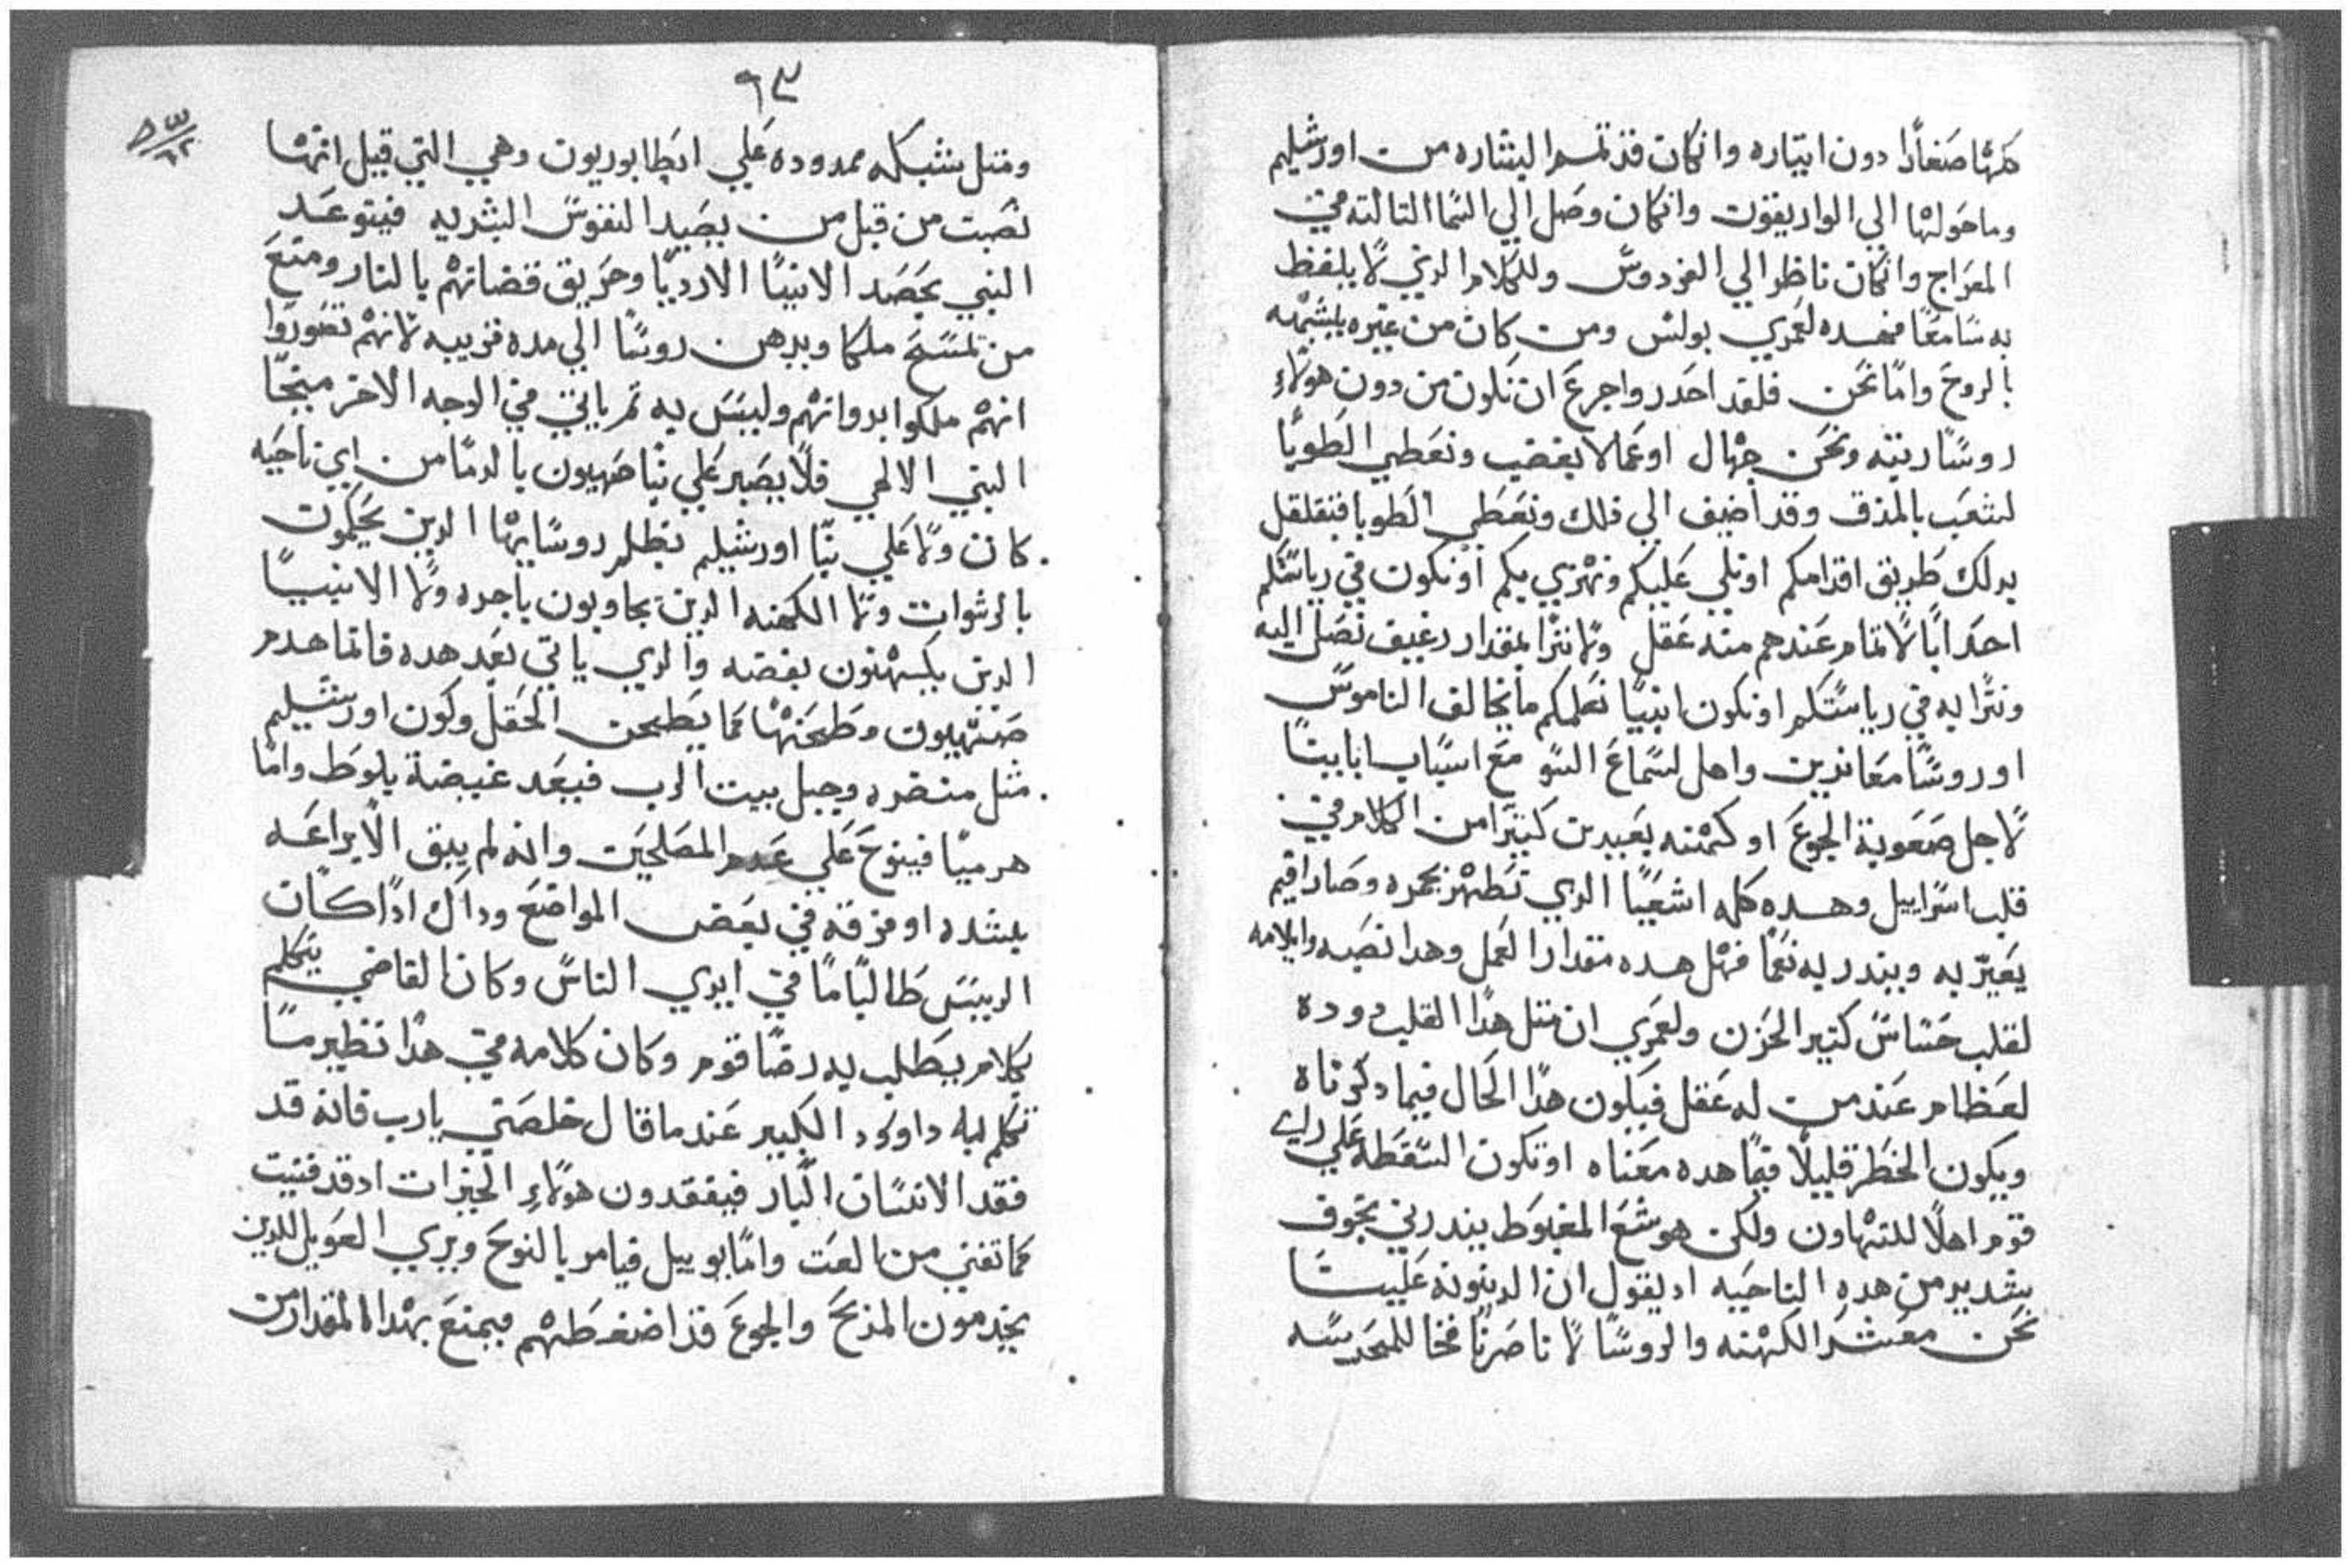 كلها صغارًا دون ايتاره وان كان قد تمم البشاره من اورشليم
وما حولها الي الواريقون وان كان وصل الي السما التالته في
المعراج وان كان ناظرا الي الفردوس وللكلام الدي لا يلفظ
به سامعًا فهده لعمري بولس ومن كان من غيره يشبهه
بالروح واما نحن فلقد احدر واجزع ان نكون من دون هولاءِ
روسًا رديه ونحن جهال او عمالا بغضب ونعطي الطوبا
لشعب بالمذق وقد اضيف الي دلك ونعطي الطوبا فنقلقل
بدلك طريق اقدامكم او نلي عليكم ونهزي بكم او نكون في رياستكم
احداثا لا تمام عندهم منه عقل ولا نثرا بمقدار رغيف نصل اليه
ونثرا به في رياستكم او نكون انبيا نعلمكم ما يخالف الناموس
او روسًا معاندين واهل لسماع السو مع اسباب ابايينا
لاجل صعوبة الجوع او كهنه بعيدين كتيرا من الكلام في
قلب اسراييل وهده كله اشعيا الدي تطهر بجمره وصار اقيم
يعيّر به ويندر به نعمًا فهل هده مقدار العمل وهدا نصبه وايلامه
لقلب حساس كتير الحزن ولعمري ان متل هدا القلب دوده
لعظام عند من له عقل فيكون هدا الحال فيما دكرناه
ويكون الخطر قليلًا فيما هده معناه او تكون السقطه علي راي
قوم اهلًا للتهاون ولكن هوشع المغبوط ينذرني بخوف
شديد من هده الناحيه اد يقول ان الدينونه علينا
نحن معشر الكهنه والروسا لانا صرنا فخا للمحرسه
٩٣
ومتل شبكه ممدوده علي ايطابوريون وهي التي قيل انها
نصبت من قبل من يصيد النفوس البشريه فيتوعد
النبي بحصد الانبيا الارديا وحريق قضاتهم بالنار ومنع
من تمسح ملكا ويدهن روسًا الي مده قريبه لانهم تصوروا
انهم ملكوا بدواتهم وليس به تم ياتي في الوجه الاخر ميخا
النبي الالهي فلا يصبر علي بنا صهيون بالدما من اي ناحيه
كان ولا علي بنا اورشليم بظلم روسايها الدين يحكمون
بالرشوات ولا الكهنه الدين يجاوبون باجره ولا الانبيا
الدين يكهنون بفضه والدي ياتي بعد هده فانما هدم
صهيون وطحنها كما يطحن الحقل وكون اورشليم
متل منضره وجبل بيت الرب فيعد غيضة بلوط واما
هرميا فينوح علي عدم المصلحين وانه لم يبق الا يراعه
بلشده او مزقه في بعض المواضع وداك اداكان
الرييس طالبًا ما في ايدي الناس وكان القاضي يتكلم
بكلام يطلب به رضا قوم وكان كلامه في هدا نظير ما
تكلم به داوود الكبير عندما قال خلصني يارب فانه قد
فقد الانسان البار فيفقدون هولاءِ الخيرات ادقد فنيت
كما تفني من العت واما يوييل فيامر بالنوح ويري العويل للدين
يخدمون المذبح والجوع قد اضغطهم فيمنع بهدا المقدار من